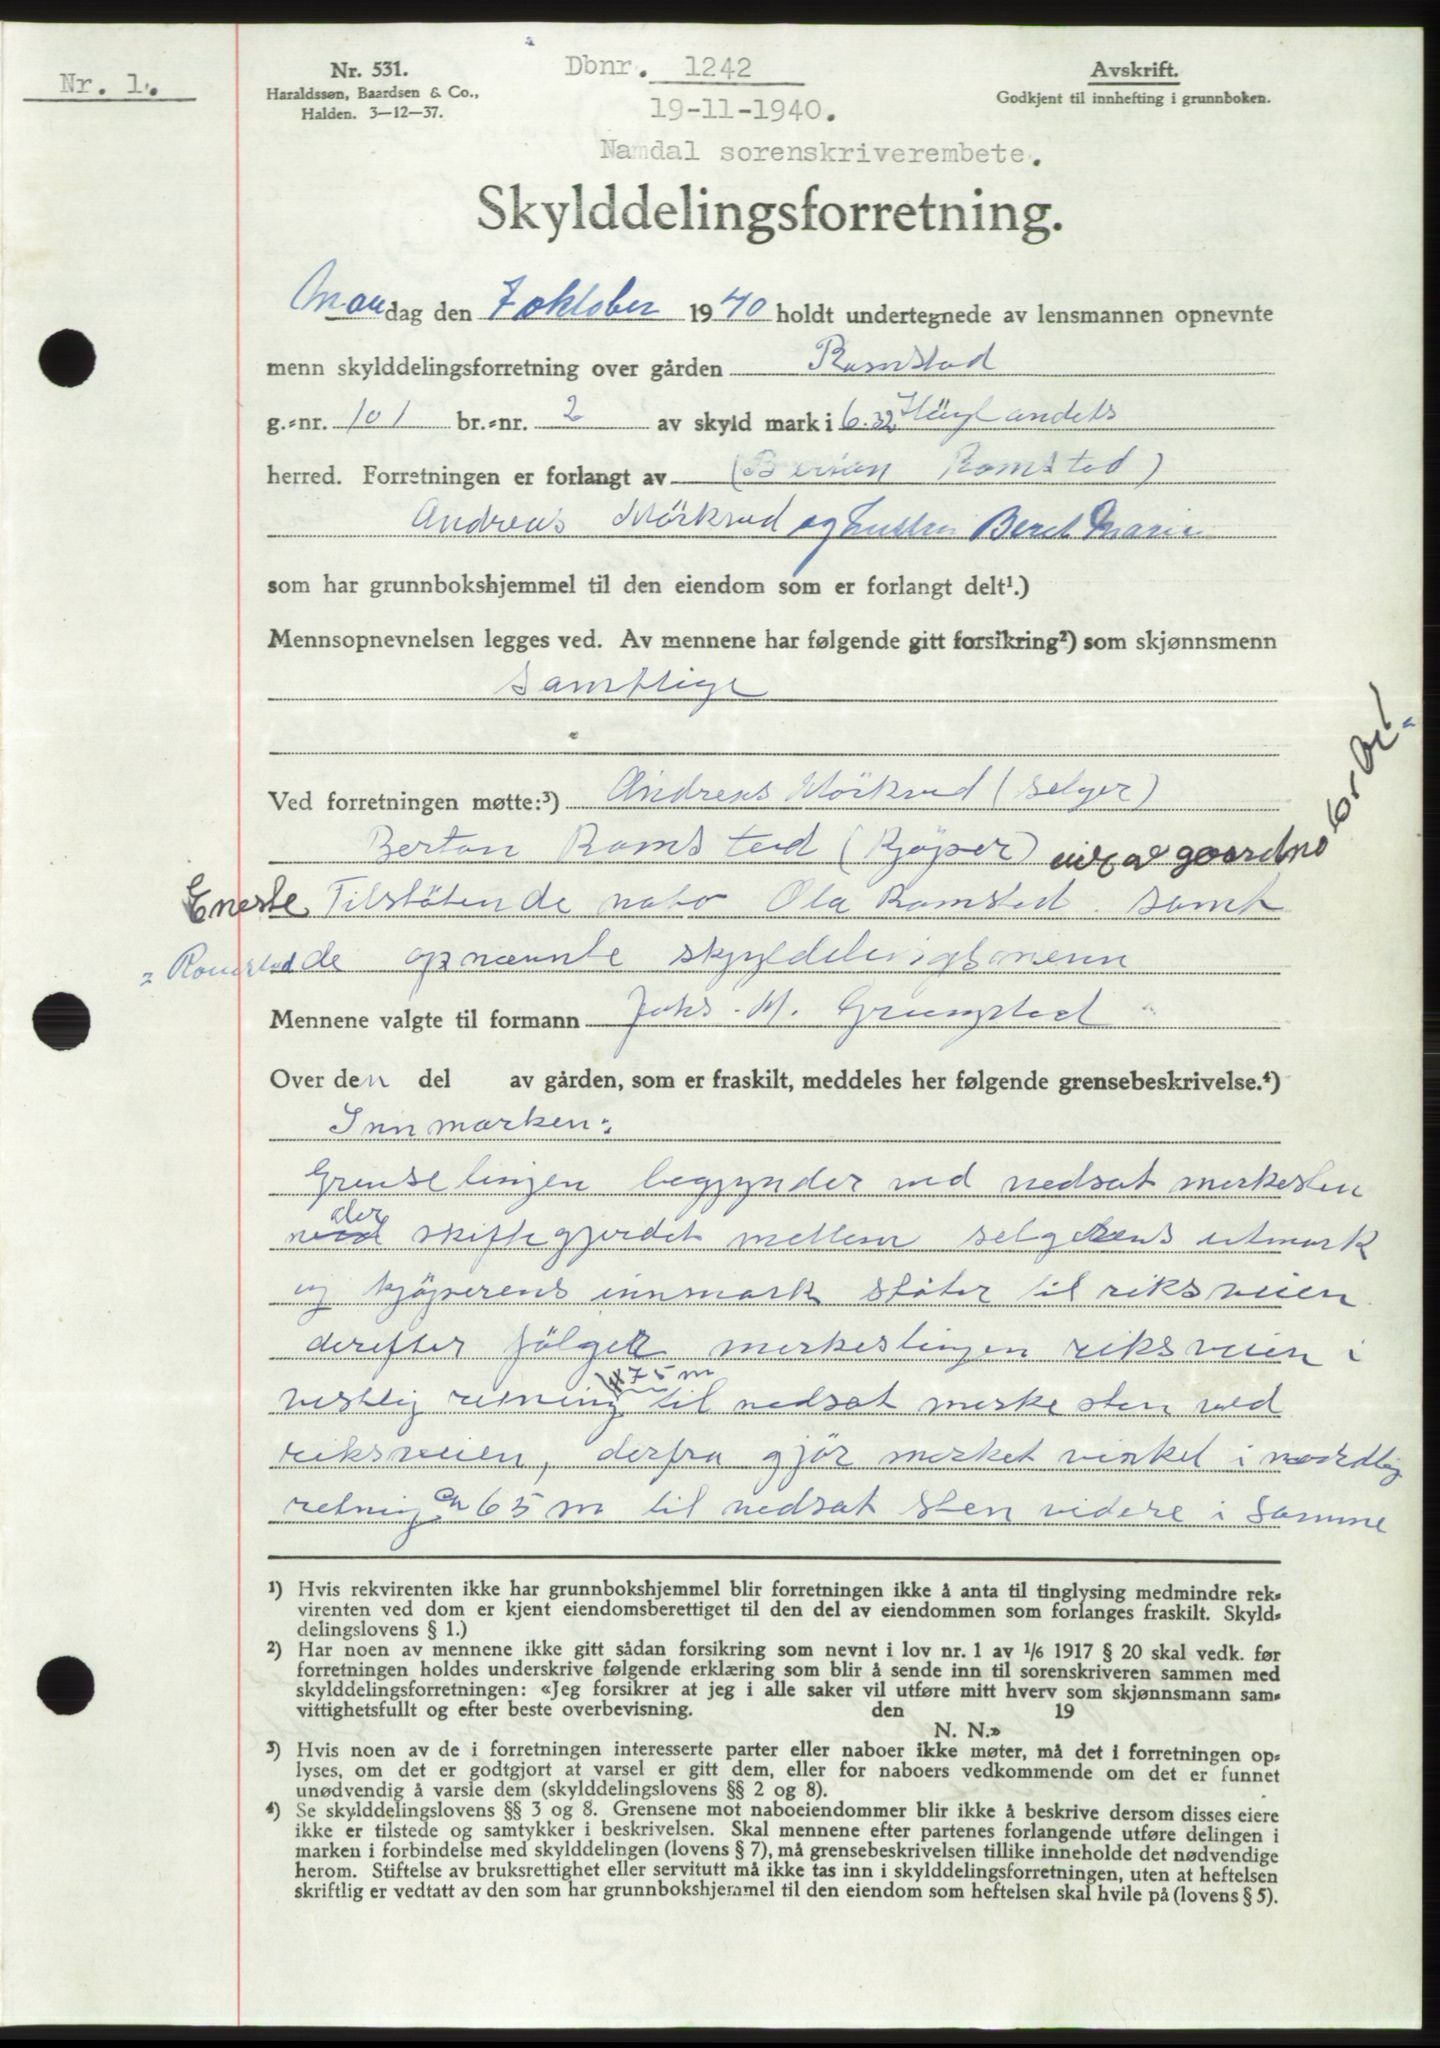 Nr. 1.
Nr. 531.
Haraldssøn, Baardsen & Co.,
Halden. 3—12—37.
Dbnr. 1242
19-11-1940.
Namdal sorenskriverembete.
Avskrift.
Godkjent til innhefting i grunnboken.
Skylddelingsforretning.
Mandag den 7 oktober 1940 holdt undertegnede av lensmannen opnevnte
menn skylddelingsforretning over gården Romstad
g.-nr. 101 br.-nr. 2 av skyld mark i 6.32 Höylandets
herred. Forretningen er forlangt av (Berton Romstad)
Andreas Mörkved og hustru Beret Marie
som har grunnbokshjemmel til den eiendom som er forlangt delt¹.)
Mennsopnevnelsen legges ved. Av mennene har følgende gitt forsikring²) som skjønnsmenn
samtlige
Ved forretningen møtte:³) Andreas Mörkved (selger)
Berton Romstad (Kjöper) eier av gaardno
Eneste Tilstötende nabo Ola Romstad. samt
" Romstad de opnævnte skylddelingsmenn
Mennene valgte til formann Johs. M. Grongstad
Over den del av gården, som er fraskilt, meddeles her følgende grensebeskrivelse.⁴)
Innmarken:
Grenselinjen begynder ved nedsat merkesten
der
ved skiftegjerdet mellem selgerens utmark
og kjöperens innmark stöter til riksveien
derefter fölger merkeslinjen riksveien i
475 m
vestlig retning til nedsat merkesten ved
riksveien, derfra gjör merket vinkel i nordlig
retning ca 65 m til nedsat sten videre i samme
¹) Hvis rekvirenten ikke har grunnbokshjemmel blir forretningen ikke å anta til tinglysing medmindre rek-
virenten ved dom er kjent eiendomsberettiget til den del av eiendommen som forlanges fraskilt. Skyld-
delingslovens § 1.)
²) Har noen av mennene ikke gitt sådan forsikring som nevnt i lov nr. 1 av 1/6 1917 § 20 skal vedk. før
forretningen holdes underskrive følgende erklæring som blir å sende inn til sorenskriveren sammen med
skylddelingsforretningen: «Jeg forsikrer at jeg i alle saker vil utføre mitt hverv som skjønnsmann sam-
vittighetsfullt og efter beste overbevisning. den 19
N. N.»
³) Hvis noen av de i forretningen interesserte parter eller naboer ikke møter, må det i forretningen op-
lyses, om det er godtgjort at varsel er gitt dem, eller for naboers vedkommende om det er funnet
unødvendig å varsle dem (skylddelingslovens §§ 2 og 8).
⁴) Se skylddelingslovens §§ 3 og 8. Grensene mot naboeiendommer blir ikke å beskrive dersom disses eiere
ikke er tilstede og samtykker i beskrivelsen. Skal mennene efter partenes forlangende utføre delingen i
marken i forbindelse med skylddelingen (lovens § 7), må grensebeskrivelsen tillike inneholde det nødvendige
herom. Stiftelse av bruksrettighet eller servitutt må ikke tas inn i skylddelingsforretningen, uten at heftelsen
skriftlig er vedtatt av den som har grunnbokshjemmel til den eiendom som heftelsen skal hvile på (lovens § 5).